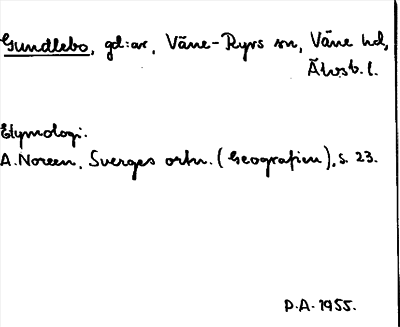 Gundlebo, gd:ar, Väne-Ryrs sn, Väne hd,
Älvsb. l.
Etymologi.
A. Noreen, Sverges ortn. (Geografien), s. 23.
P.A. 1955.